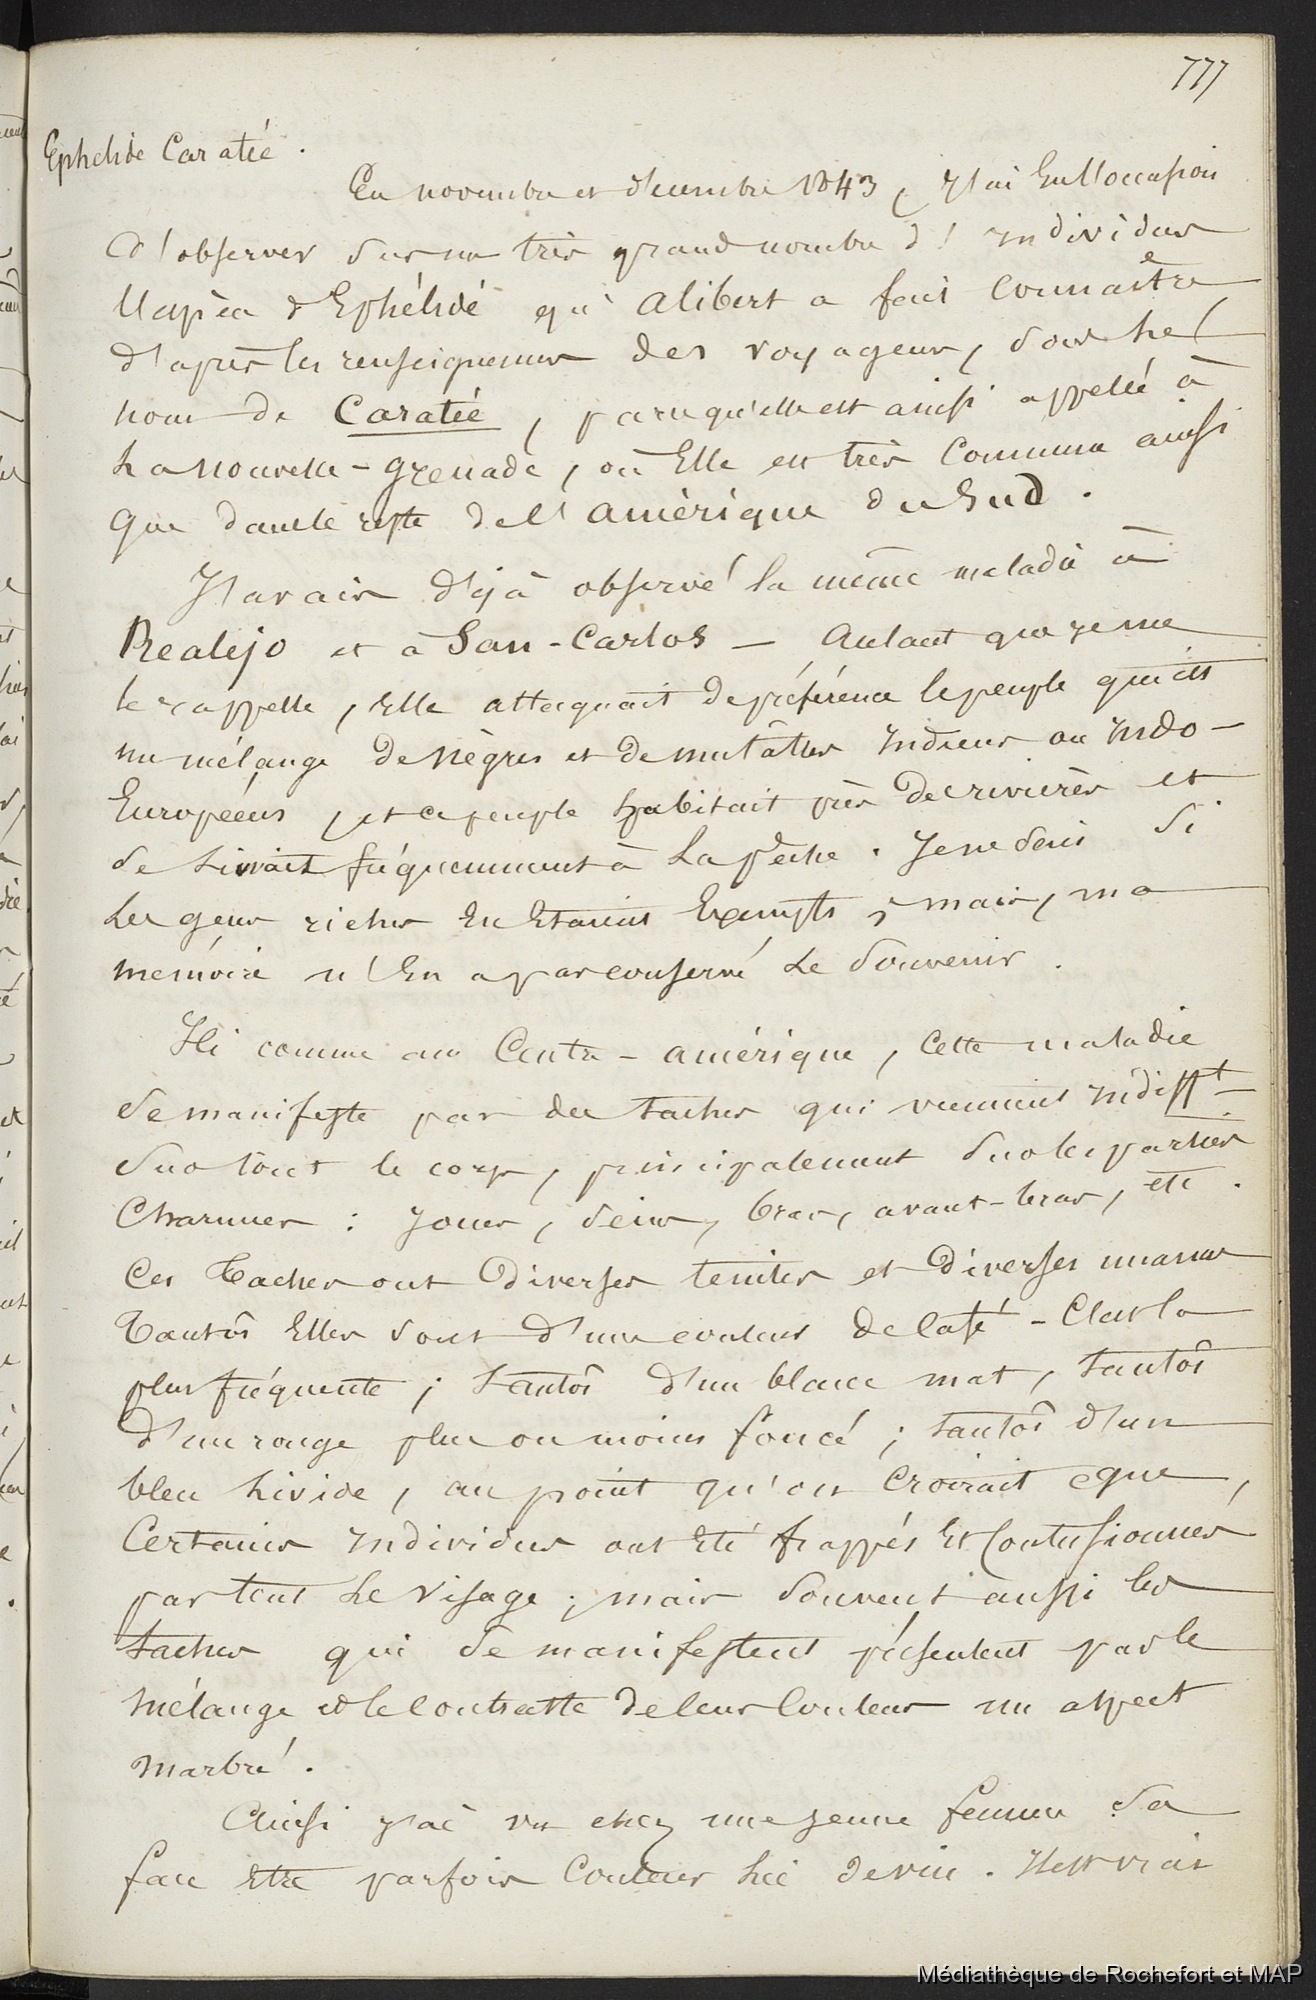 777
Ephélide Caratée.
En novembre et décembre 1843, j'ai eu l'occasion
d'observer sur un très grand nombre d'individus
l'espèce d'Ephélidé qu'Alibert a fait connaître
d'après les renseignemens des voyageurs, sous le
nom de Caratée, parcequ'elle est ainsi appellée à
la nouvelle-grenade, où Elle est très commune ainsi
que dans le reste de l'amérique du Sud.
J'avais déjà observé la même maladie à
Realejo et à San-Carlos — Autant que je me
le rappelle, elle attaquait de préférence le peuple qui est
un mélange de nègres et de mulâtres indiens ou indo-
Européens, et ce peuple habitait près de rivières et
se livrait fréquemment à la pêche. Je ne sais si
les gens riches en étaient Exempts; mais, ma
mémoire n'En a pas conservé le souvenir.
Ici comme au Centre-amérique, cette maladie
se manifeste par des taches qui viennent indifft
sur tout le corps, principalement sur les parties
charnues: joues, seins, bras, avant-bras, etc.
Ces taches ont diverses teintes et diverses nuances
Tantôt Elles sont d'une couleur de café - C'est la
plus fréquente; tantôt d'un blanc mat, tantôt
d'un rouge plus ou moins foncé; tantôt d'un
bleu livide, au point qu'on croirait que,
certains individus ont été frappés et contusionnés
par tout le visage; mais souvent aussi les
taches qui se manifestent présentent par le
mélange et le contraste de leur couleur un aspect
marbré.
Ainsi j'ai vu chez une jeune femme sa
face être parfois couleur lie de vin. Il est vrai
Médiathèque de Rochefort et MAP